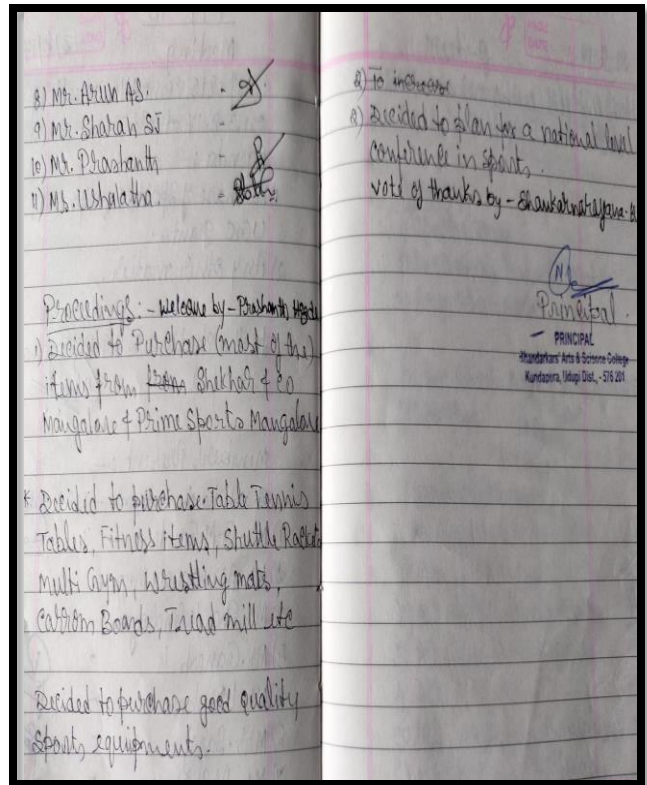 8) Mr. Arun A.S. -
9) Mr. Sharan SJ -
10) Mr. Prashanth
11) Ms. Ushalatha -
Proceedings : - Welcome by - Prashanth
1) Decided to Purchase (most of the)
items from from Shekhar & Co
Mangalore & Prime Sports Mangalore
* Decided to purchase Table Tennis
Tables, Fitness items, Shuttle Rackets
multi Gym, Wrestling mats,
Carrom Boards, Triad mill etc
Decided to purchase good quality
sports equipments.
2) To increase
2) Decided to plan for a national level
conference in sports.
vote of thanks by - Shankarnarayana
Principal.
PRINCIPAL
Bhandarkars' Arts & Science College
Kundapura, Udupi Dist., - 576 201